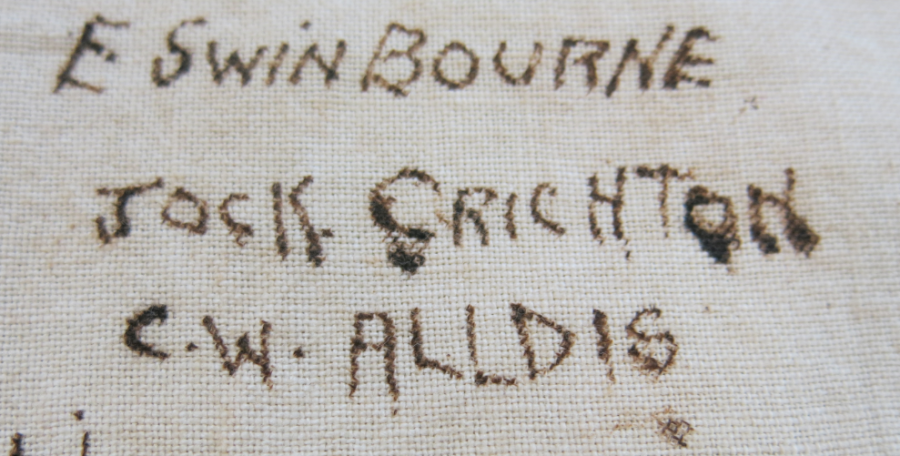 E SWiN BOURNE
JOCK CRICHTON
C.W. ALLDIS